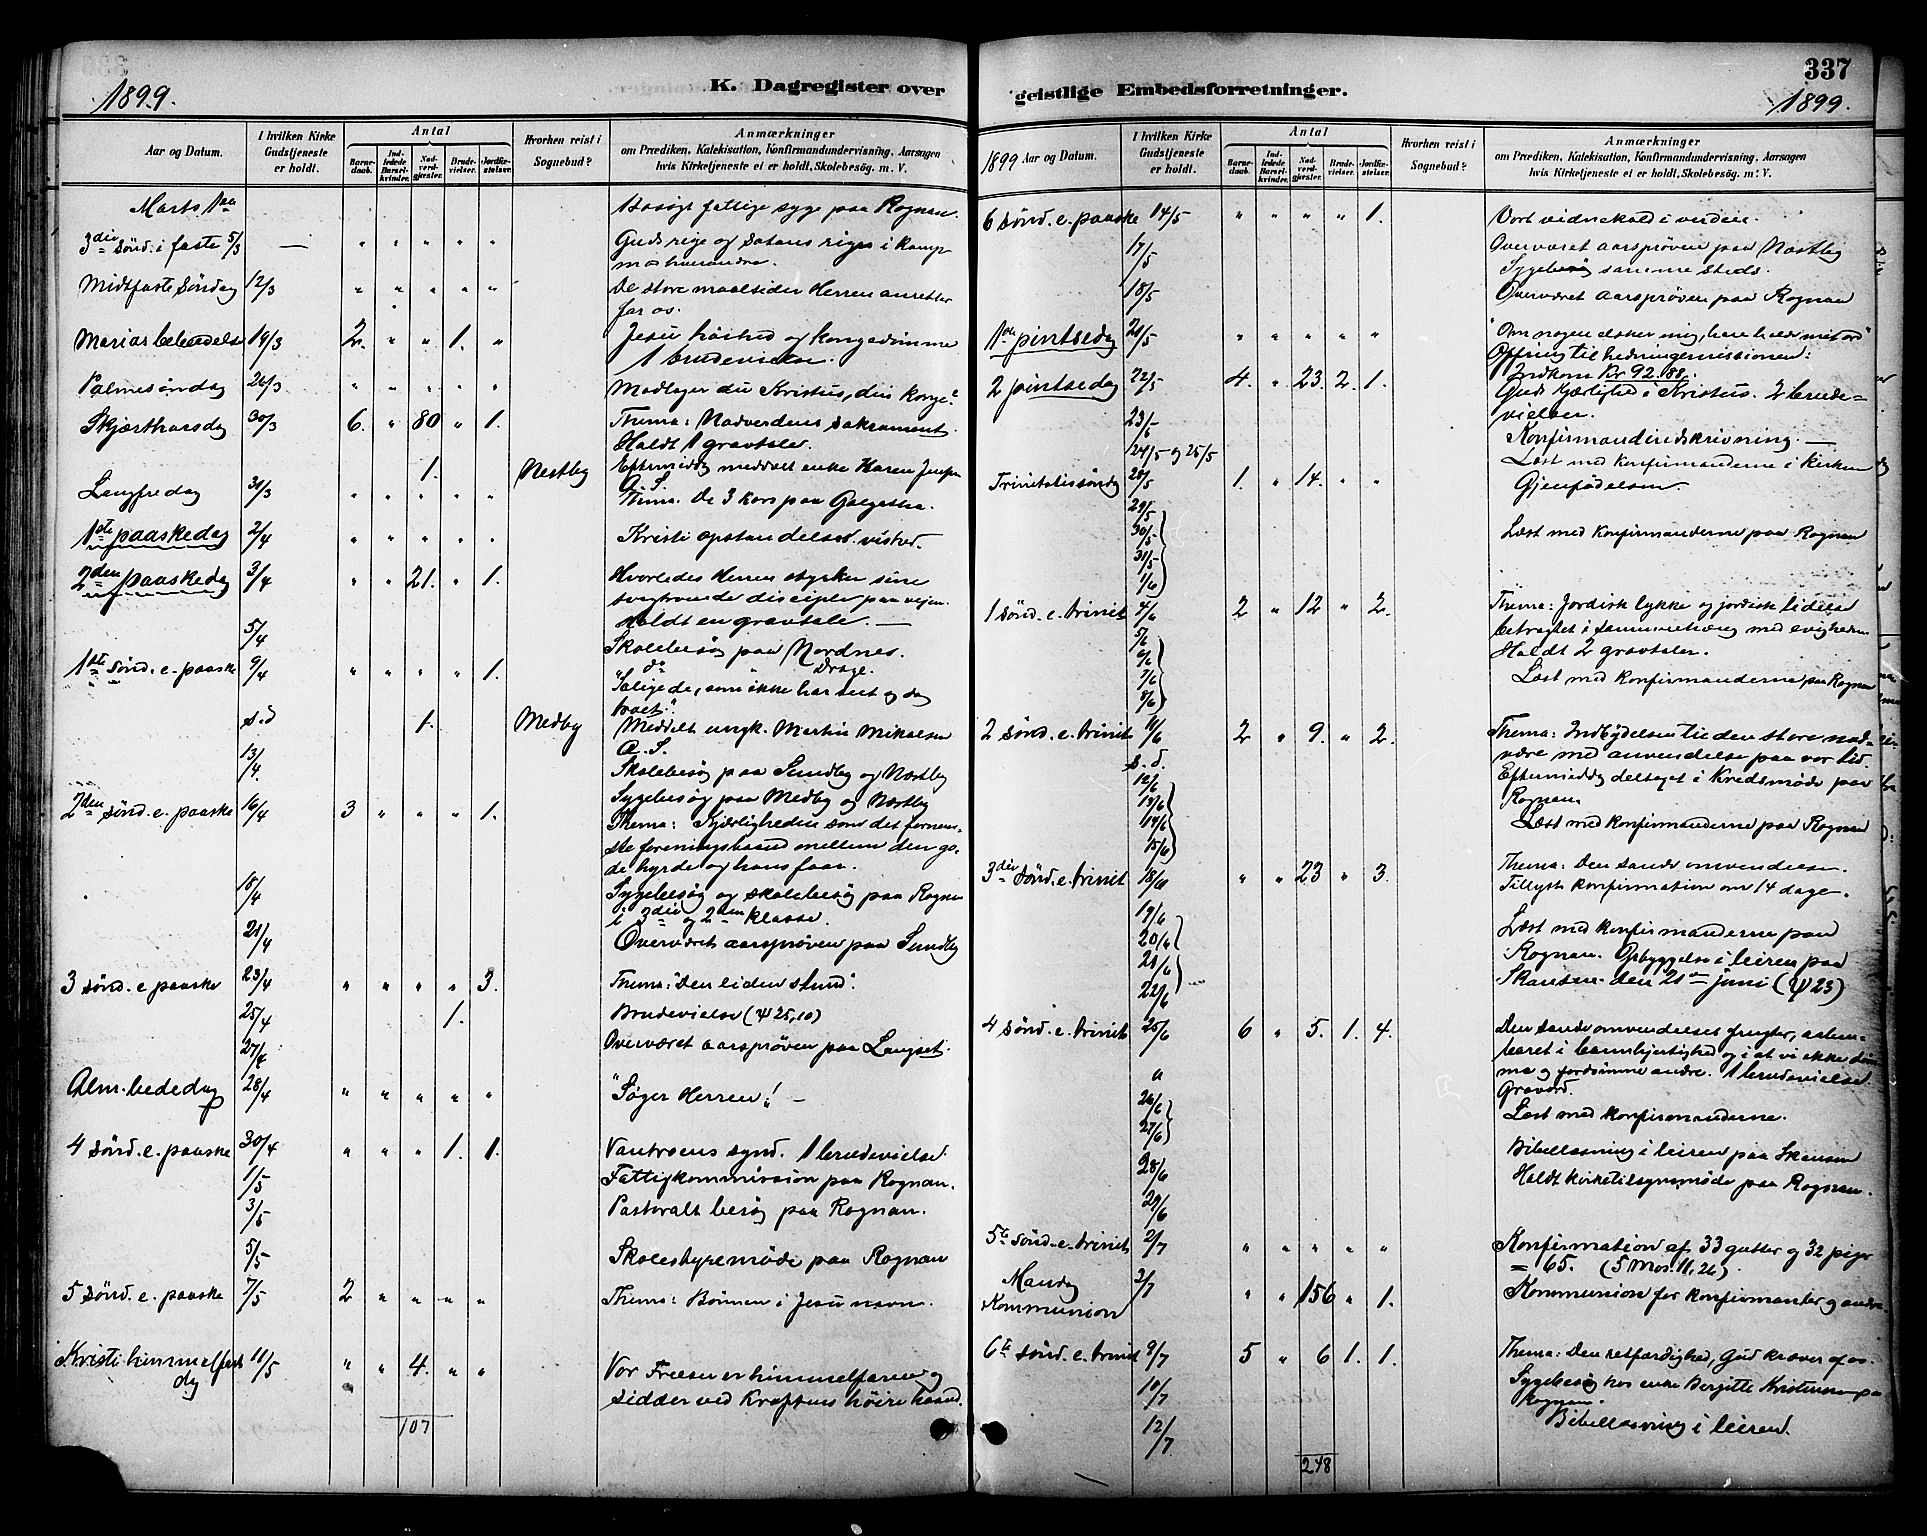 1899.
K. Dagregister over
Aar og Datum.
I hvilken Kirke Gudstjeneste er holdt.
Antal
Barnedaab.
Indledede Barselkvinder.
Nadverdgjæster.
Brudevielser.
Jordfæstelser.
Hvorhen reist i Sognebud?
Anmærkninger
om Prædiken, Katekisation, Konfirmandundervisning, Aarsagen
hvis Kirketjeneste ei er holdt, Skolebesøg. m. V.
Marts 1ste Besøgt fattige syge paa Rognan.
3die sönd. i faste 5/3 — " " " " " Guds rige og Satans rige i kamp
mod hverandre.
Midtfaste Söndag 12/3 " " " " " De store maaltider Herren anretter
for os.
Marias bebudelse 19/3 2. " " 1. " Jesu höihed og kongedömme
1 brudevielse.
Palmesöndag 26/3 " " " " " Modtager du Kristus, din konge?
Skjærthorsdag 30/3 6. " 80 " 1. Thema: Nadverdens sakrament.
Holdt 1 gravtale.
1. Nestby Eftermiddag meddelt enke Karen
A. S.
Langfredag 31/3 " " " " " Thema: De 3 kors paa Golgatha.
1ste paaskedag 2/4 " " " " " Kristi opstandelses vished.
2den paaskedag 3/4 " " 21. " 1. Hvorledes Herren styrker sine
svagtroende disciple paa vejen.
Holdt en gravtale. —
5/4 Skolebesøg paa Nordnes.
1ste sönd. e. paaske 9/4 " " " " 1. do Drage.
"Salige de, som ikke har seet og dog
troet."
s.d 1. Medby Meddelt ungk. Martin Mikalsen
A. S.
13/4 Skolebesøg paa Sundby og Næstby
Sygebesøg paa Medby og Næstby
2den sönd. e. paaske 16/4 3 " " " 1. Thema: Kjærligheden som det fornem-
ste foreningsbaand mellem den go-
de hyrde og hans faar.
18/4 Sygebesøg og skolebesøg paa Rognan
i 3die og 2den klasse.
21/4 Overværet aarsprøven paa Sundby
3 sönd. e paaske 23/4 " " " " 3. Thema: "Den liden stund".
25/4 1. Brudevielse (ψ 25,10)
27/4 Overværet aarsprøven paa Langset.
Alm. bededag 28/4 " " " " " "Søger Herren"! —
4 sönd. e. paaske 30/4 " " " 1. 1. Vantroens synd. 1 brudevielse.
1/5 Fattigkommission paa Rognan.
3/5 Pastoralt besøg paa Rognan.
5/5 Skolestyremøde paa Rognan
5 sönd. e. paaske 7/5 2 " " " " Thema: Bönnen i Jesu navn.
Kristi himmelfarts
dag 11/5 " " 4. " " Vor Frelser er himmelfaren og
sidder ved Kraftens höire haand.
107
337
geistlige Embedsforretninger.
1899.
1899 Aar og Datum.
I hvilken Kirke Gudstjeneste er holdt.
Antal
Barnedaab.
Indledede Barselkvinder.
Nadverdgjæster.
Brudevielser.
Jordfæstelser.
Hvorhen reist i Sognebud?
Anmærkninger
om Prædiken, Katekisation, Konfirmandundervisning, Aarsagen
hvis Kirketjeneste ei er holdt, Skolebesøg. m. V.
6 Sönd. e. paaske 14/5 " " " " 1. Vort vidnekald i verden.
17/5 Overværet aarsprøven paa Næstby
Sygebesøg samme steds.
18/5 Overværet aarsprøven paa Rognan
1ste pintsedag 21/5 " " " " " "Om nogen elsker mig, han holder mit ord"
Offring til hedningemissionen:
Indkom Kr 92.88.
2 pintsedag 22/5 4. " 23. 2. 1. Guds kjærlighed i Kristus. 2 brude-
vielser.
23/5 Konfirmandindskrivning. —
24/5 og 25/5 Læst med konfirmanderne i kirken
Trinitatissöndag 28/5 1. " 14. " " Gjenfödelsen.
29/5
30/5 Læst med konfirmanderne paa Rognan
31/5
1/6
1 sönd. e. trinit 4/6 2 " 12 " 2. Thema: Jordisk lykke og jordisk lidelse
5/6 betragtet i sammenhæng med evigheden.
6/6 Holdt 2 gravtaler.
7/6 Læst med konfirmanderne paa Rognan
8/6
2 sönd. e. trinit 11/6 2 " 9. " 2. Thema: Indbydelsen til den store nad-
s. d. være med anvendelse paa vor tid.
12/6 Eftermiddag deltaget i kredsmøde paa
13/6 Rognan.
14/6 Læst med konfirmanderne paa Rognan
15/6
3die sönd. e. trinit 18/6 " " 23 " 3. Thema: Den sande omvendelse.
Tillyst konfirmation om 14 dage.
19/6 Læst med konfirmanderne paa
20/6 Rognan. Opbyggelse i leiren paa
21/6 Skansen den 21de juni (ψ 23)
22/6
4 sönd. e. trinit 25/6 6 " 5. 1. 4. Den sande omvendelses frugter, aaben-
baret i barmhjertighed og i at vi ikke döm-
me og fordömme andre. 1 brudevielse
Gravord.
26/6 Læst med konfirmanderne.
27/6
28/6 Bibellæsning i leiren paa Skansen
29/6 Holdt kirketilsynsmøde paa Rognan.
5te sönd. e. trinit 2/7 " " " " " Konfirmation af 33 gutter og 32 piger
= 65. (5 Mos. 11,26).
Mandag
Kommunion 3/7 " " 156 " 1. Kommunion for konfirmanter og andre.
6te sönd. e. trinit 9/7 5 " 6 1. 1. Thema: Den retfærdighed, Gud kræver af os.
10/7 Sygebesøg hos enke Bergitte Kristensen paa
Rognan.
12/7 Bibellæsning i leiren.
248